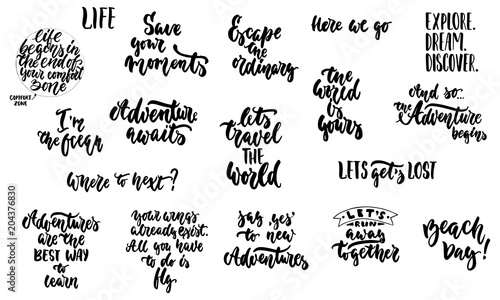 LIFE
life
begins in
the end of
your comfort
zone
COMFORT
ZONE
Save
your
moments
Escape
the
ordinary
Here we go
EXPLORE.
DREAM.
DISCOVER.
I'm
the
Adventure
awaits
let's
travel
THE
world
the
world
is
yours
And so...
the Adventure
begins
where to next?
LETS get's LOST
Adventures
are the
BEST WAY
to
learn
your wings
already exist.
All you have
to do is
fly
say 'yes'
to new
Adventures
LET'S
RUN
away
together
Beach
Day!
Adobe Stock | #204376830